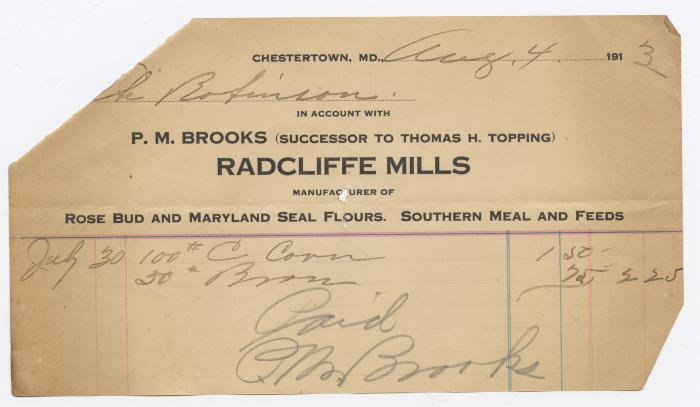 CHESTERTOWN, MD., Aug. 4 1913
Robinson.
IN ACCOUNT WITH
P. M. BROOKS (SUCCESSOR TO THOMAS H. TOPPING)
RADCLIFFE MILLS
MANUFACTURER OF
ROSE BUD AND MARYLAND SEAL FLOURS. SOUTHERN MEAL AND FEEDS
July 30 100 # C Corn 1 50
50 " Bran 75 2 25
Paid
P. M. Brooks